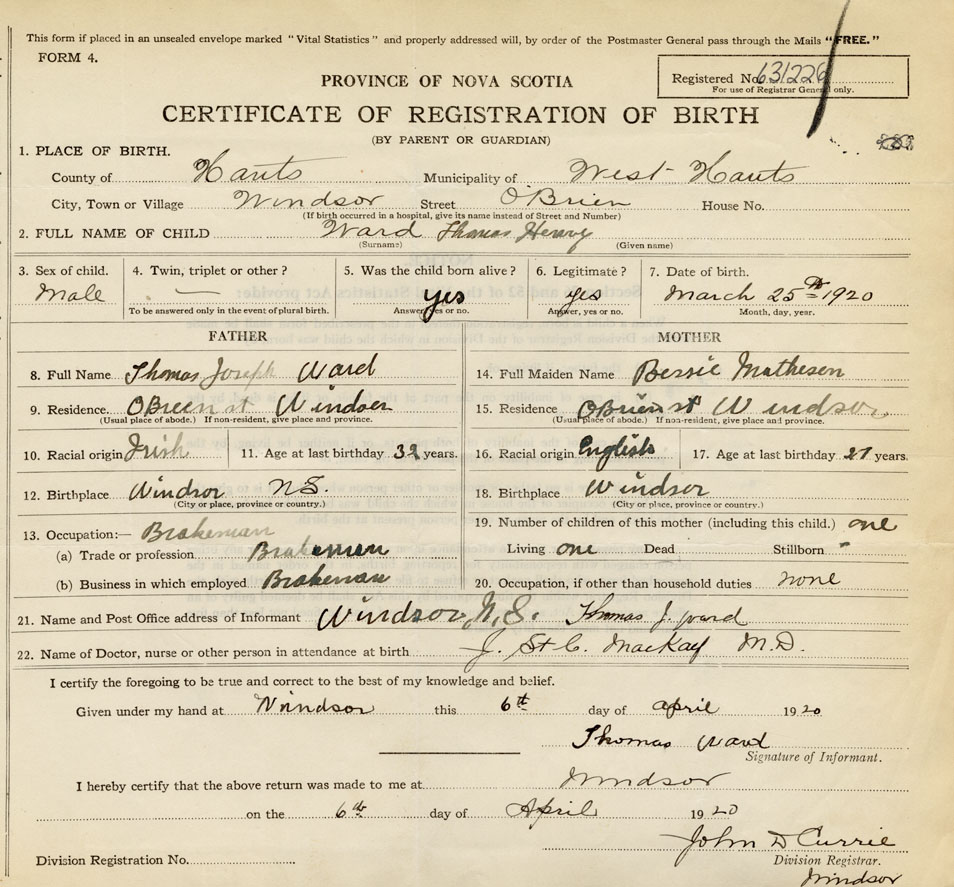 This form if placed in an unsealed envelope marked "Vital Statistics" and properly addressed will, by order of the Postmaster General pass through the Mails "FREE."
FORM 4.
Registered No. 631226
For use of Registrar General only.
PROVINCE OF NOVA SCOTIA
CERTIFICATE OF REGISTRATION OF BIRTH
(BY PARENT OR GUARDIAN)
1. PLACE OF BIRTH.
County of Hants Municipality of West Hants
City, Town or Village Windsor Street O'Brien House No.
(If birth occurred in a hospital, give its name instead of Street and Number)
2. FULL NAME OF CHILD Ward Thomas Henry
(Surname) (Given name)
3. Sex of child. 4. Twin, triplet or other? 5. Was the child born alive? 6. Legitimate? 7. Date of birth.
Male — yes yes March 25th 1920
To be answered only in the event of plural birth. Answer, yes or no. Answer, yes or no. Month, day, year.
FATHER MOTHER
8. Full Name Thomas Joseph Ward 14. Full Maiden Name Bessie Mathesen
9. Residence. OBrien st Windsor 15. Residence OBrien st Windsor.
(Usual place of abode.) If non-resident, give place and province. (Usual place of abode.) If non-resident, give place and province.
10. Racial origin Irish 11. Age at last birthday 32 years. 16. Racial origin English 17. Age at last birthday 27 years.
12. Birthplace Windsor N.S. 18. Birthplace Windsor
(City or place, province or country.) (City or place, province or country.)
13. Occupation:— Brakeman 19. Number of children of this mother (including this child.) one
(a) Trade or profession Brakeman Living one Dead Stillborn -
(b) Business in which employed Brakeman 20. Occupation, if other than household duties none
21. Name and Post Office address of Informant Windsor, N.S. Thomas J. Ward
22. Name of Doctor, nurse or other person in attendance at birth J. St C. MacKay M.D.
I certify the foregoing to be true and correct to the best of my knowledge and belief.
Given under my hand at Windsor this 6th day of april 1920
Thomas Ward
Signature of Informant.
I hereby certify that the above return was made to me at Windsor
on the 6th day of April 1920
John D Currie
Division Registration No. Division Registrar.
Windsor